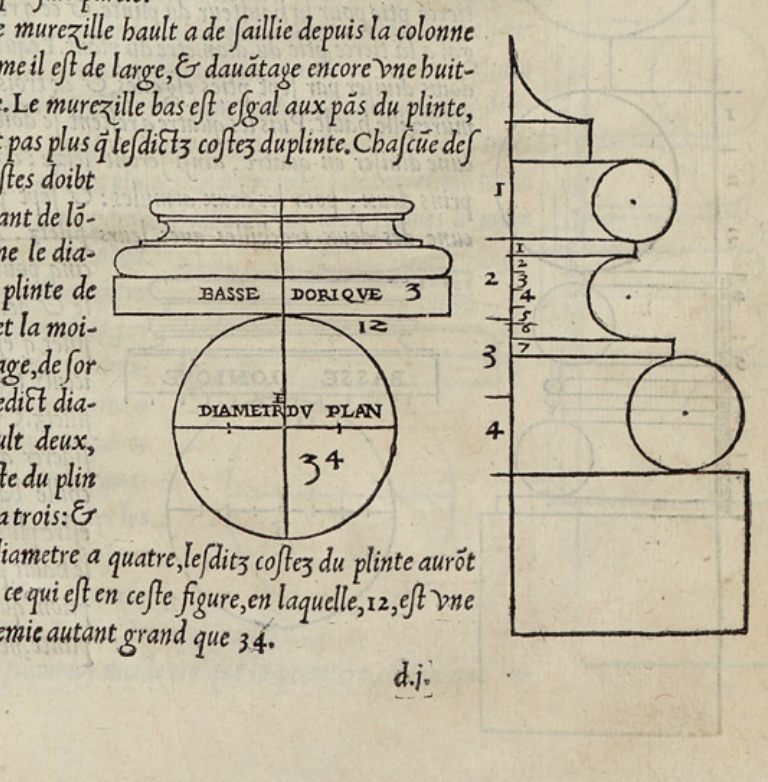 e murezille hault a de ſaillie depuis la colonne
me il eſt de large,& dauãtage encore vne huit-
e. Le murezille bas eſt eſgal aux pãs du plinte,
t pas plus q̃ leſdictʒ coſteʒ du plinte. Chaſcũe deſ
ſtes doibt
ant de lõ-
ne le dia-
plinte de
et la moi-
age, de ſor
edict dia-
ult deux,
te du plin
a trois: &
diametre a quatre, leſditʒ coſteʒ du plinte aurõt
ce qui eſt en ceſte figure, en laquelle, 12, eſt vne
emie autant grand que 34.
d.j.
BASSE DORIQVE 3
12
DIAMETRE DV PLAN
34
1
1
2
2
3
4
5
6
3
7
4